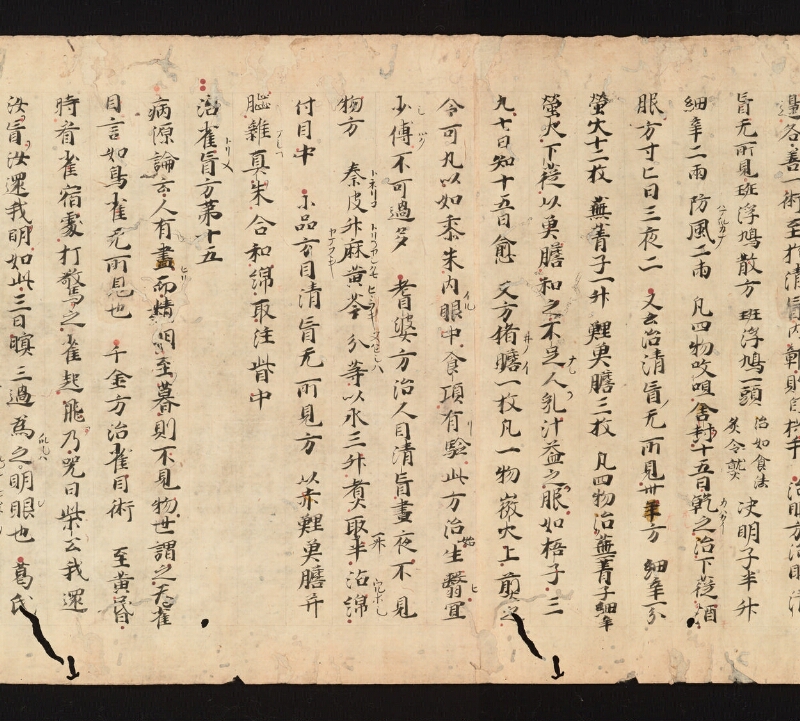 盲无所見班浮鳩散方 班浮鳩一頭 治如食法 炙令熟 决明子半升
細辛二兩 防風二兩 凡四物㕮咀 十五日乾之治下蓰酒
服方寸匕日三夜二 又云治清盲无所見卅年方 細辛一分
螢火十二枚 蕪菁子一升 鯉奠膽三枚 凡四物治蕪菁子細辛
螢火下蓰以奠膽和之不足人乳汁益之服如梧子三
丸廿日知十五日愈 又方猪膽一枚凡一物微火上煎之
令可丸以如黍米内眼中食頃有驗此方治生翳冝
少傅不可過多 耆婆方治人目清盲晝夜不見
物方 秦皮升麻黄芩分等以水三升煮取半沾綿
付目中 小品方目清盲无所見方 以赤鯉奠膽并
腦雜真朱合和綿取注眥中
治雀盲方第十五
病源論云人有晝而精明至暮則不見物世謂之雀
目言如鳥雀无所見也 千金方治雀目術 至黄昏
時看雀宿處打驚之雀起飛乃咒曰紫公我還
汝盲汝還我明如此三日暝三過為之明眼也 葛氏